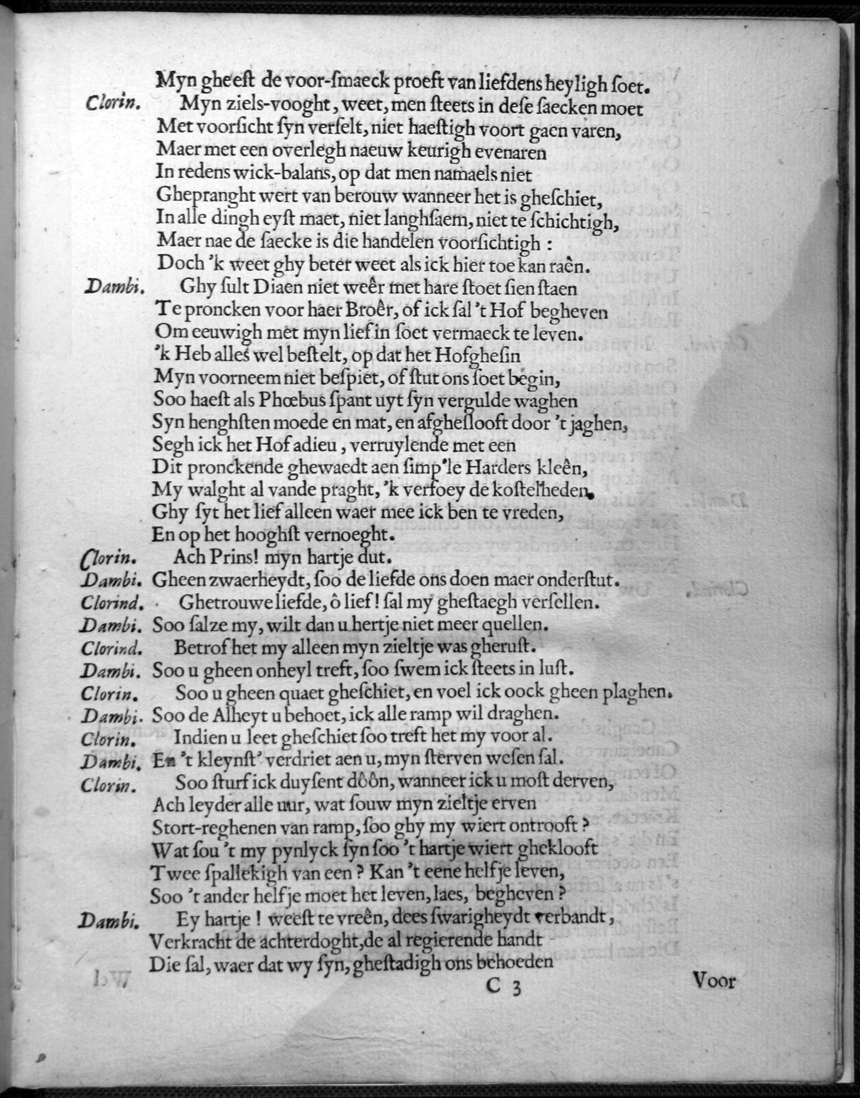 Myn gheeſt de voor-ſmaeck proeft van liefdens heyligh ſoet.
Clorin. Myn ziels-vooght, weet, men ſteets in deſe ſaecken moet
Met voorſicht ſyn verſelt, niet haeſtigh voort gaen varen,
Maer met een overlegh naeuw keurigh evenaren
In redens wick-balans, op dat men namaels niet
Ghepranght wert van berouw wanneer het is gheſchiet,
In alle dingh eyſt maet, niet langhſaem, niet te ſchichtigh,
Maer nae de ſaecke is die handelen voorſichtigh :
Doch 'k weet ghy beter weet als ick hier toe kan raên.
Dambi. Ghy ſult Diaen niet weêr met hare ſtoet ſien ſtaen
Te proncken voor haer Broêr, of ick ſal 't Hof begheven
Om eeuwigh met myn lief in ſoet vermaeck te leven.
'k Heb alles wel beſtelt, op dat het Hofgheſin
Myn voorneem niet beſpiet, of ſtut ons ſoet begin,
Soo haeſt als Phœbus ſpant uyt ſyn vergulde waghen
Syn henghſten moede en mat, en afgheſlooft door 't jaghen,
Segh ick het Hof adieu, verruylende met een
Dit pronckende ghewaedt aen ſimp'le Harders kleên,
My walght al vande praght, 'k verfoey de koſtelheden,
Ghy ſyt het lief alleen waer mee ick ben te vreden,
En op het hooghſt vernoeght.
Clorin. Ach Prins! myn hartje dut.
Dambi. Gheen zwaerheydt, ſoo de liefde ons doen maer onderſtut.
Clorind. Ghetrouwe liefde, ô lief! ſal my gheſtaegh verſellen.
Dambi. Soo ſalze my, wilt dan u hertje niet meer quellen.
Clorind. Betrof het my alleen myn zieltje was gheruſt.
Dambi. Soo u gheen onheyl treft, ſoo ſwem ick ſteets in luſt.
Clorin. Soo u gheen quaet gheſchiet, en voel ick oock gheen plaghen.
Dambi. Soo de Alheyt u behoet, ick alle ramp wil draghen.
Clorin. Indien u leet gheſchiet ſoo treft het my voor al.
Dambi. En 't kleynſt' verdriet aen u, myn ſterven weſen ſal.
Clorin. Soo ſturf ick duyſent dôôn, wanneer ick u moſt derven,
Ach leyder alle uur, wat ſouw myn zieltje erven
Stort-reghenen van ramp, ſoo ghy my wiert ontrooft ?
Wat ſou 't my pynlyck ſyn ſoo 't hartje wiert gheklooft
Twee ſpallekigh van een ? Kan 't eene helfje leven,
Soo 't ander helfje moet het leven, laes, begheven ?
Dambi. Ey hartje ! weeſt te vreên, dees ſwarigheydt verbandt,
Verkracht de achterdoght, de al regierende handt
Die ſal, waer dat wy ſyn, gheſtadigh ons behoeden
C 3 Voor